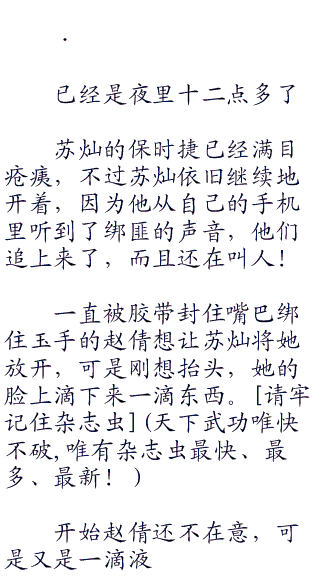 .
已经是夜里十二点多了
苏灿的保时捷已经满目
疮痍，不过苏灿依旧继续地
开着，因为他从自己的手机
里听到了绑匪的声音，他们
追上来了，而且还在叫人！
一直被胶带封住嘴巴绑
住玉手的赵倩想让苏灿将她
放开，可是刚想抬头，她的
脸上滴下来一滴东西。[请牢
记住杂志虫](天下武功唯快
不破,唯有杂志虫最快、最
多、最新！)
开始赵倩还不在意，可
是又是一滴液